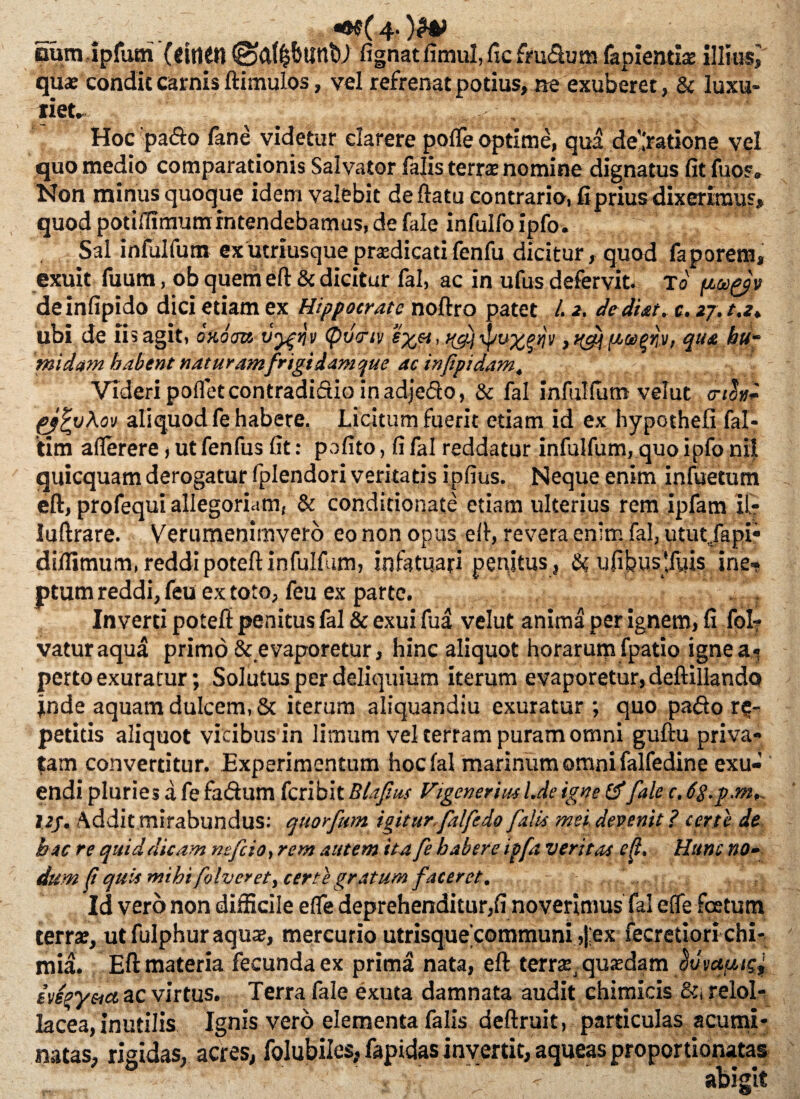 (4.)
num ipſum (einen Saltzbund) ſignat ſimul, ſic fructum ſapientiæ illius,
quæ condit carnis ſtimulos, vel refrenat potius, ne exuberet, & luxu-
riet.
Hoc pacto ſane videtur clarere poſſe optime, quâ de ratione vel
quo medio comparationis Salvator ſalis terræ nomine dignatus ſit ſuos.
Non minus quoque idem valebit de ſtatu contrario, ſi prius dixerimus,
quod potiſſimum intendebamus, de ſale inſulſo ipſo.
Sal inſulſum ex utriusque prædicati ſenſu dicitur, quod ſaporem,
exuit ſuum, ob quem eſt & dicitur ſal, ac in uſus deſervit. Τὸ μωρὸν
de inſipido dici etiam ex Hippocrate noſtro patet l. 2. de diæt. c. 27. t. 2.
ubi de iis agit, ὁκόσα ὑγρὴν φύσιν ἔχει, καὶ ψυχρὴν, καὶ μωρὴν, quæ hu-
midam habent naturam frigidamque ac inſipidam.
Videri poſſet contradictio in adjecto, & ſal inſulſum velut σιδη-
ρόξυλον aliquod ſe habere. Licitum fuerit etiam id ex hypotheſi ſal-
tim aſſerere, ut ſenſus ſit: poſito, ſi ſal reddatur inſulſum, quo ipſo nil
quicquam derogatur ſplendori veritatis ipſius. Neque enim inſuetum
eſt, proſequi allegoriam, & conditionate etiam ulterius rem ipſam il-
luſtrare. Verumenimvero eo non opus eſt, revera enim ſal, utut ſapi-
diſſimum, reddi poteſt inſulſum, infatuari penitus, & uſibus ſuis ine-
ptum reddi, ſeu ex toto, ſeu ex parte.
Inverti poteſt penitus ſal & exui ſuâ velut animâ per ignem, ſi ſol-
vatur aquâ primò & evaporetur, hinc aliquot horarum ſpatio igne a-
perto exuratur; Solutus per deliquium iterum evaporetur, deſtillando
inde aquam dulcem, & iterum aliquandiu exuratur; quo pacto re-
petitis aliquot vicibus in limum vel terram puram omni guſtu priva-
tam convertitur. Experimentum hoc ſal marinum omni ſalſedine exu-
endi pluries à ſe factum ſcribit Blaſius Vigenerius l. de igne & ſale c. 68. p.m.
125. Addit mirabundus: quorſum igitur ſalſedo ſalis mei devenit? certè de
hac re quid dicam neſcio, rem autem ita ſe habere ipſa veritas eſt. Hunc no-
dum ſi quis mihi ſolveret, certè gratum faceret.
Id verò non difficile eſſe deprehenditur, ſi noverimus ſal eſſe fœtum
terræ, ut ſulphur aquæ, mercurio utrisque communi, ex ſecretiori chi-
mia. Eſt materia fecunda ex prima nata, eſt terræ quædam δύναμις,
ἐνέργεια ac virtus. Terra ſale exuta damnata audit chimicis & relol-
lacea, inutilis Ignis verò elementa ſalis deſtruit, particulas acumi-
natas, rigidas, acres, ſolubiles, ſapidas invertit, aqueas proportionatas
abigit